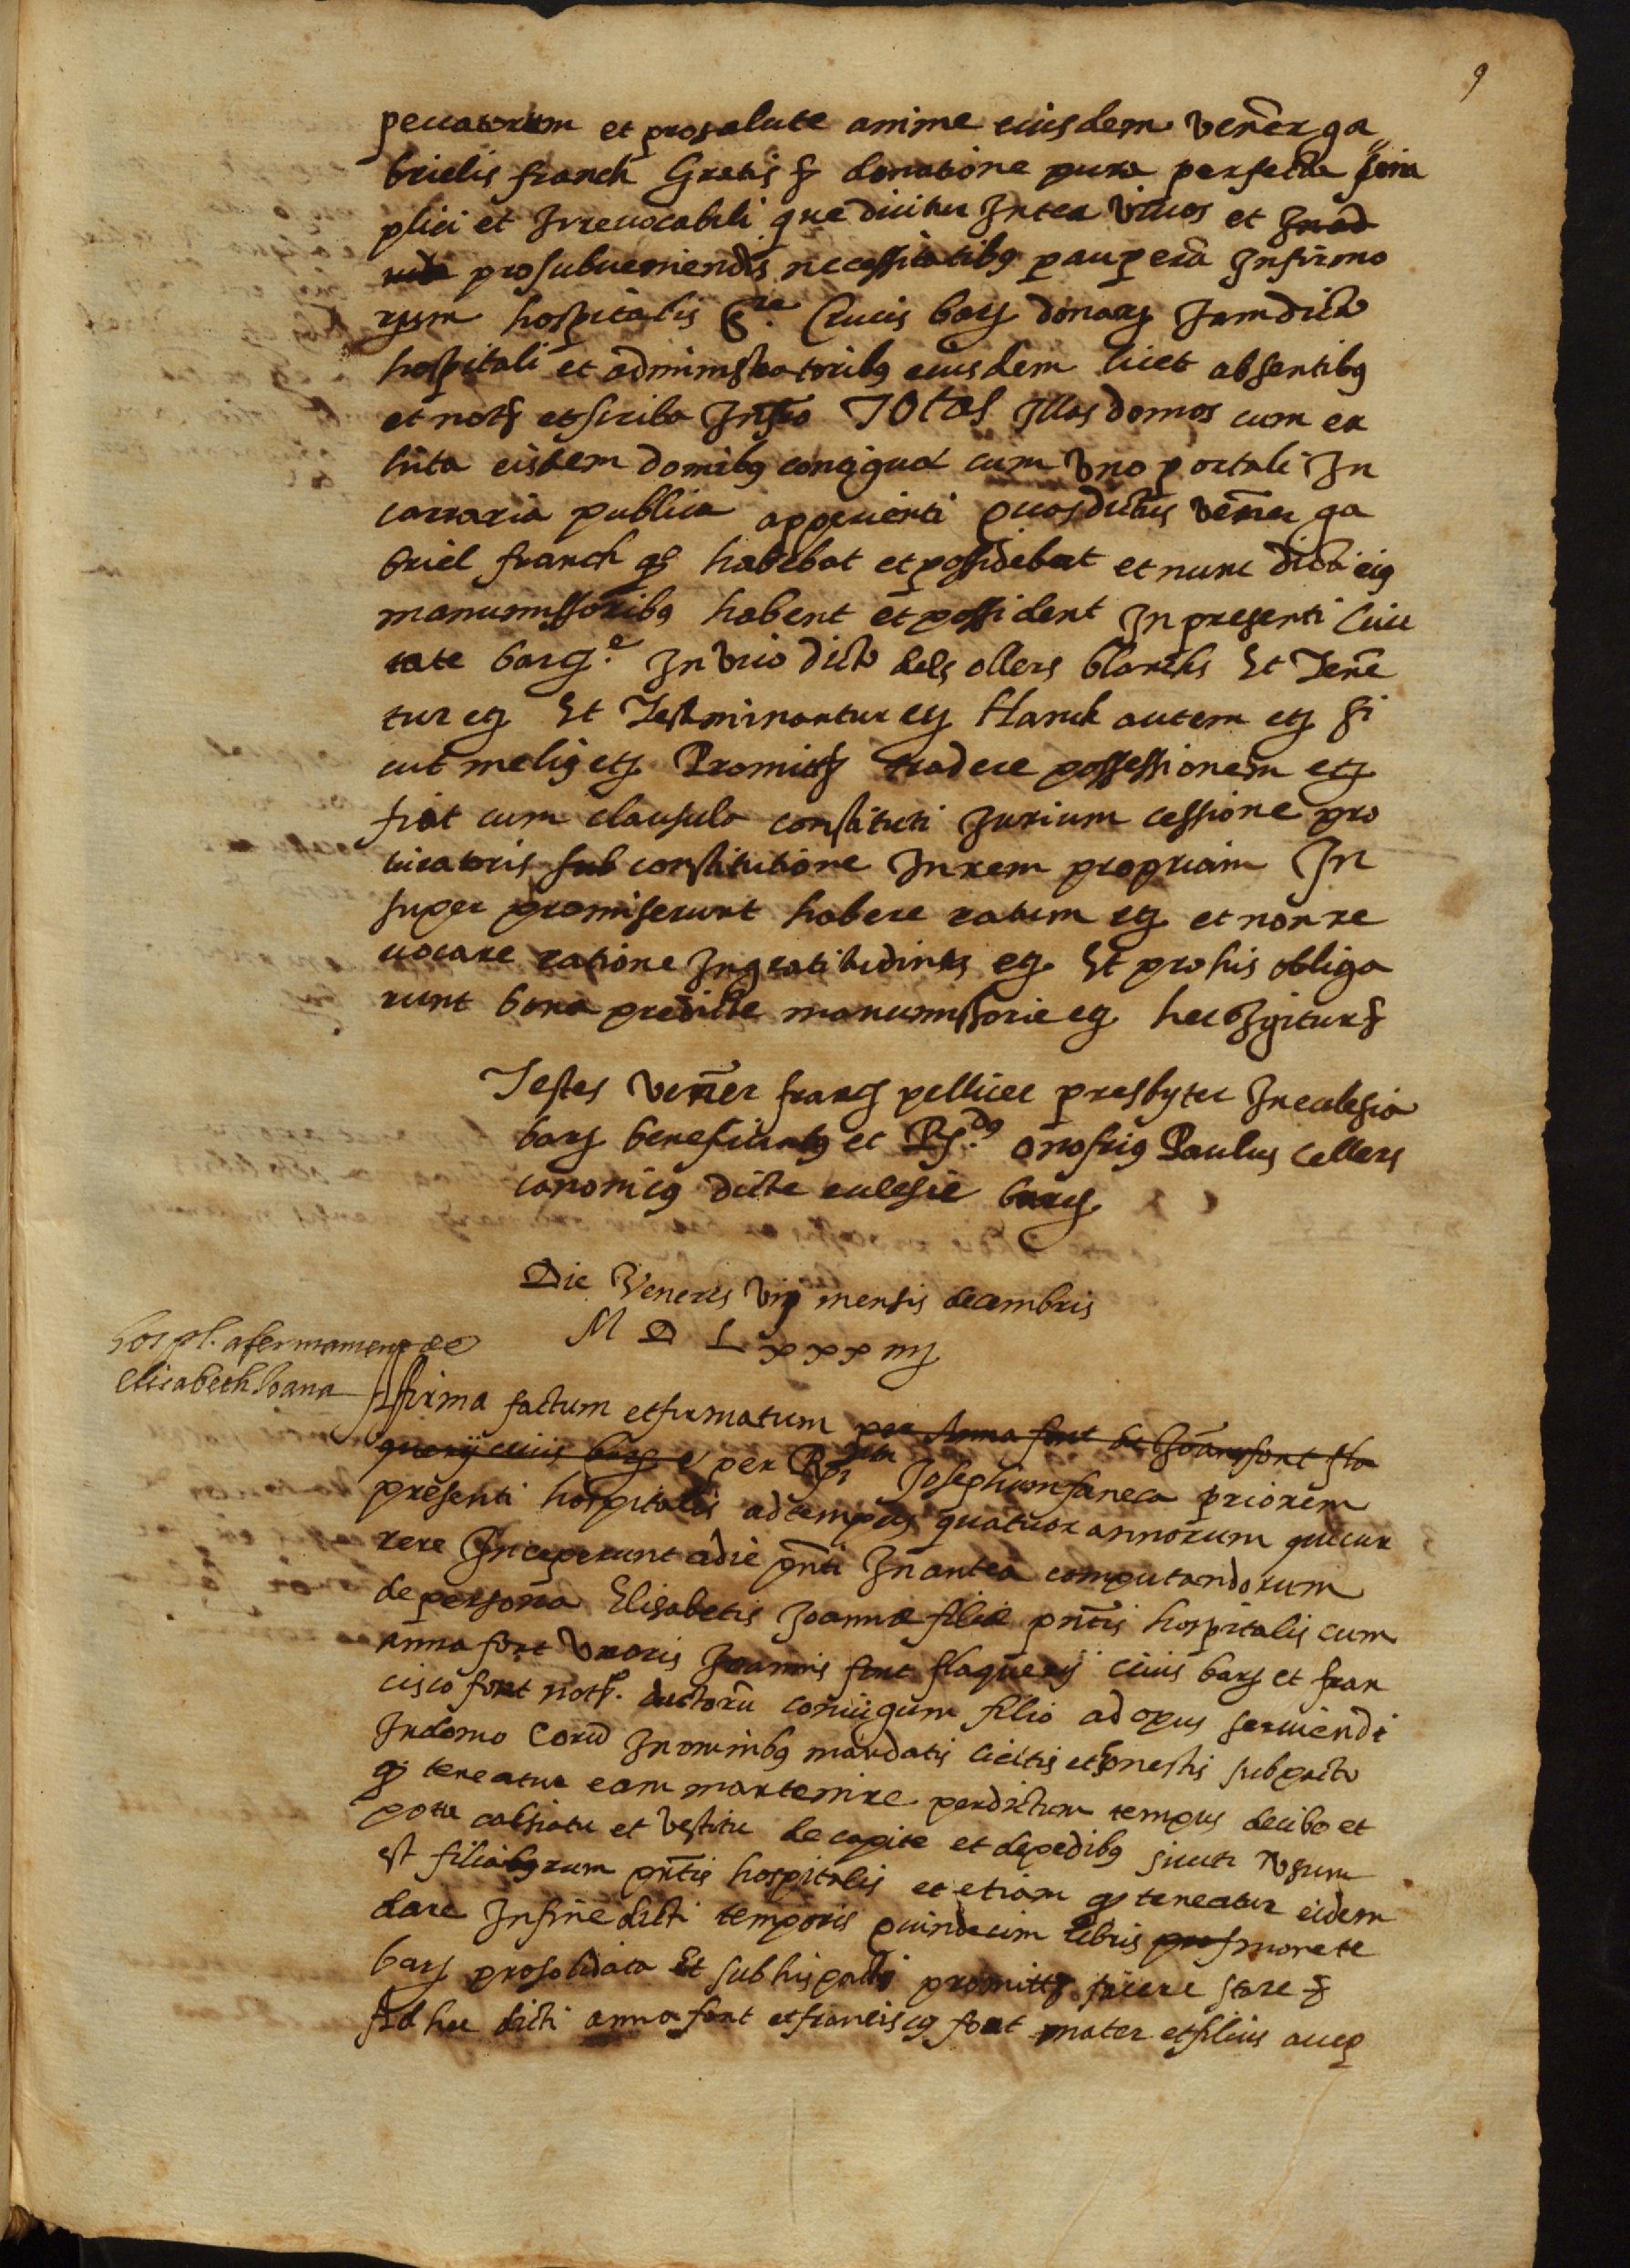 9
peccatorum et pro salute anime eiusdem vener ga
brielis franch Gratis & donatione pura perfecta sim
plici et Irrevocabili que dicitur Inter vivos et
pro subveniendis necessitatibq pauperū Infirmo
rum hospitalis Ste Crucis barz donarz Jamdicto
hospitali et administratoribq eiusdem licet absentibq
et notz et scriba Totas Illas domos cum ex
hita eisdem domibq contigua cum vno portali In
carraria publica apperienti quas dictus vener ga
briel franch qz habebat et possidebat et nunc dicti eiq
manumissoribq habent et possident In presenti Civi
tate barqe In vico dicto dels ollers blanchs Et Tene
tur etz Et Terminantur etz Hanc autem etz si
cut meliq etz Promittz tradere possessionem etz
fiat cum clausula constituti Jurium cessione pro
curatoris sub constitutione In rem propriam In
super promiserunt habere ratum etz et non re
vocare ratione Ingratitudinis etz Et pro his obliga
runt bona predicte manumissorie etz hec Igitur &
Testes vener francz pellicer presbyter In ecclesia
barz beneficiatq et Rdq onofriq Paulus Cellers
canonicq dicte ecclesie barz
Die Veneris viij mensis decembris
M D L xxx iiij
hospl. afermament de
elisabeth Joana
Affirma factum et firmatum per Anna font Joannis font fla
querij civis barz e per Rdm Josephum faneca priorem
presenti hospitalis ad tempus quatuor annorum que cur
rere Inceperunt a die pnti In antea computandorum
de persona Elisabetis Joanne filie pntis hospitalis cum
anna font vxoris Joannis font flaquerij civis barz et fran
cisco font notz. dictorū coniugum filio ad opus serviendi
In domo eorū In omnibq mandatis licitis et honestis sub pacto
qz teneatur eam mantenire per dictum tempus de cibo et
potu calsiatu et vestitu de capite et de pedibq sicuti vsum
est filiabqrum pntis hospitalis et etiam qz teneatur eidem
dare In fine dicti temporis quindecim libris monete
barz pro solidata Et sub his pactis promittz facere stare &
Ad hec dicti anna font et franciscq font mater et filius accep